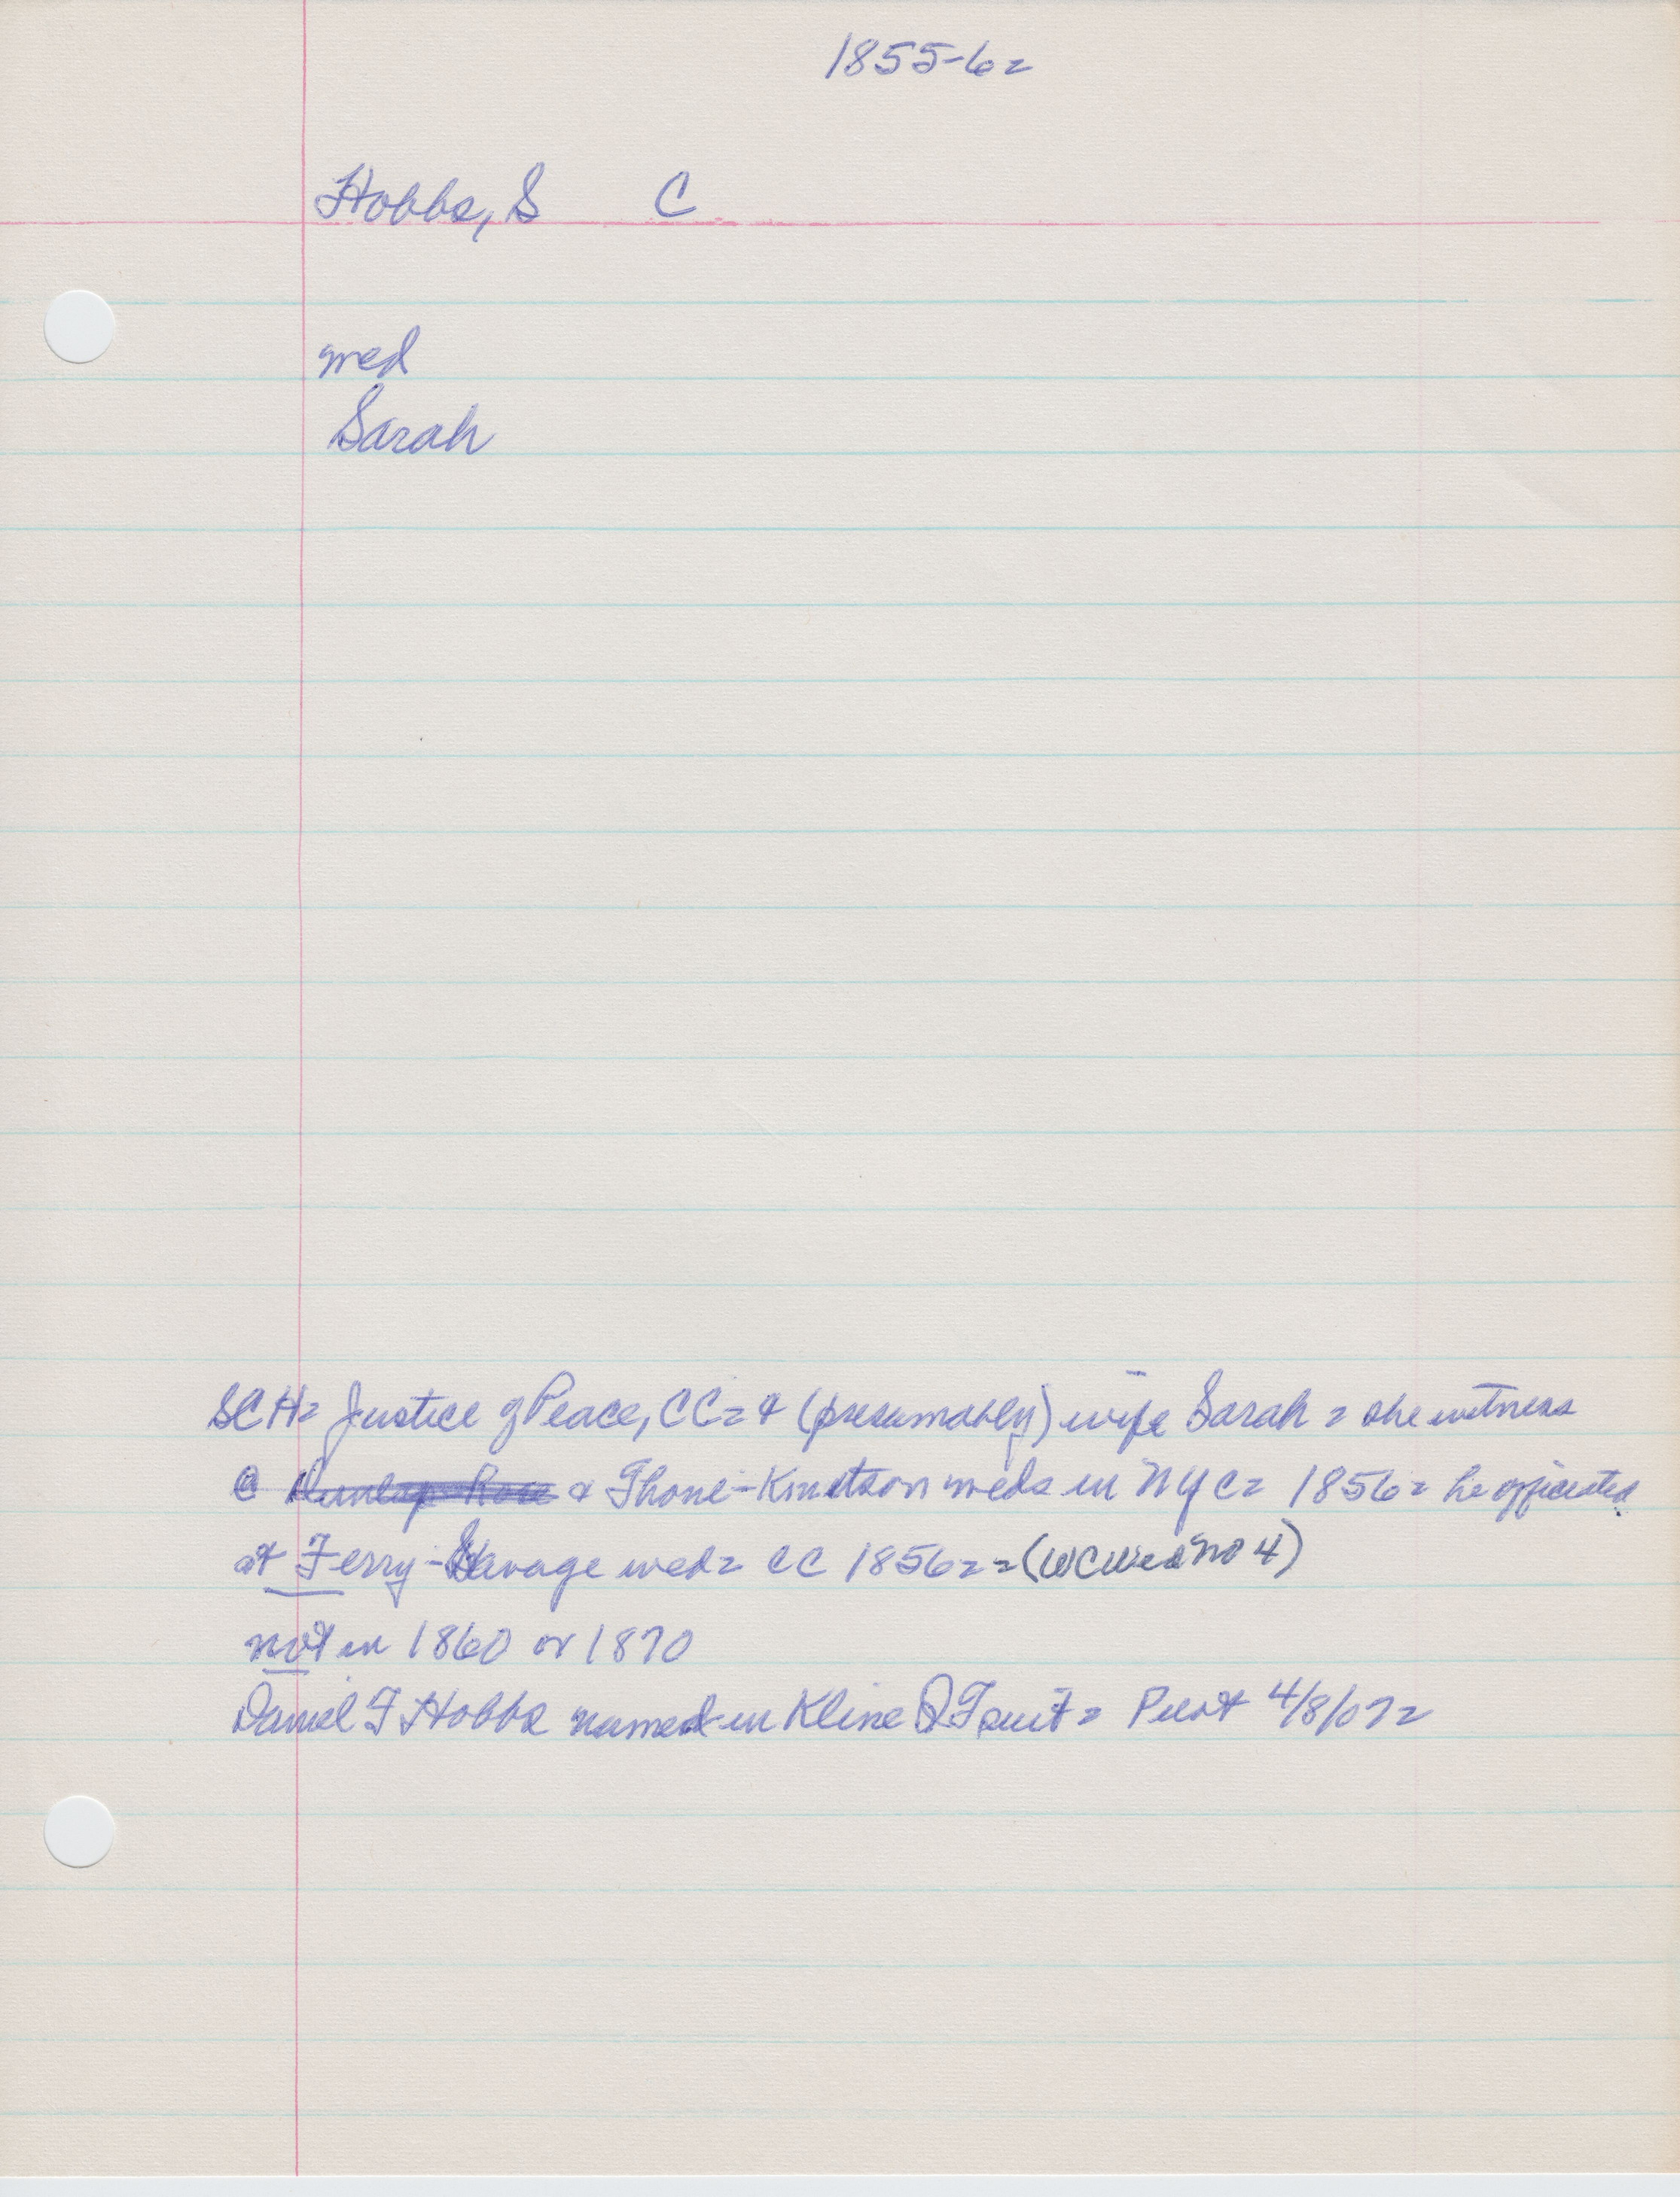 1855-6=
Hobbs, S C
wed
Sarah
SCH= Justice of Peace, CC= & (presumably) wife Sarah = she witness
@ Dunlap-Rose & Thone-Knutson weds in NYC= 1856= he officiated
at Ferry-Savage wed= CC 1856= =(WCWed No 4)
not in 1860 or 1870
Daniel F Hobbs named in Kline QT suit= 4/8/07=